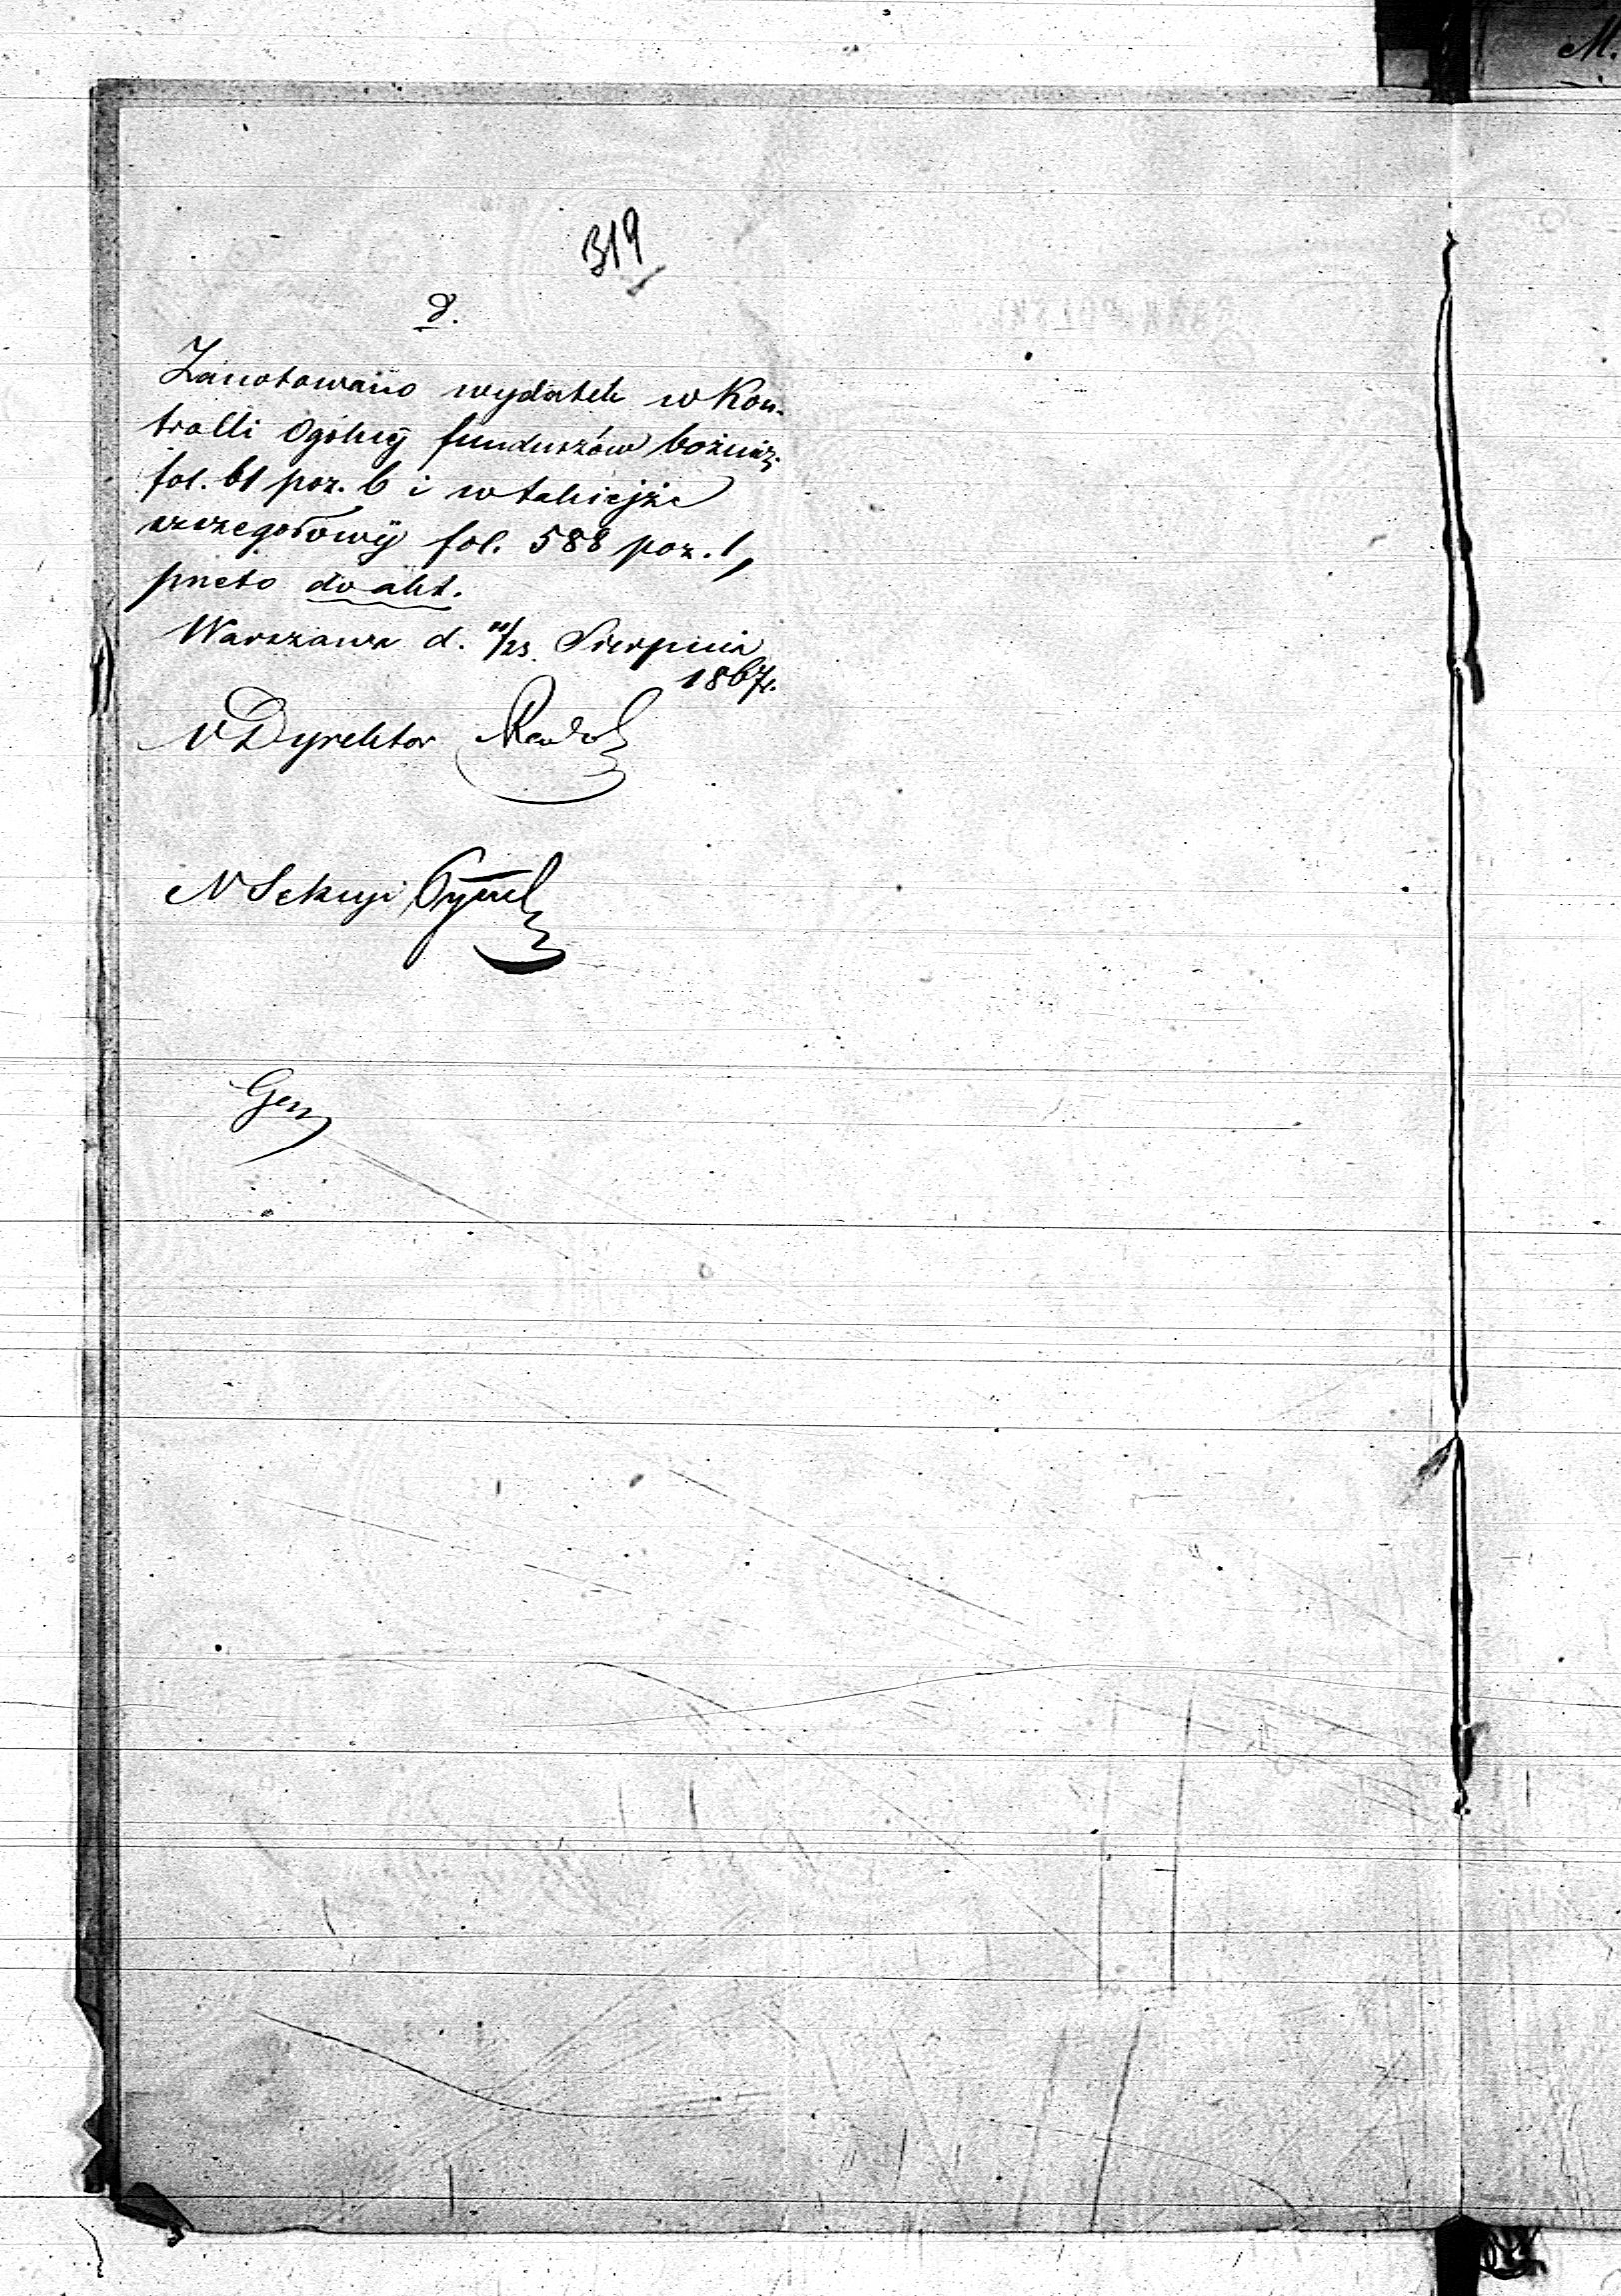 319
D.
Zanotowano wydatek w Kon-
trolli Ogólnéj funduszów bóżnicz:
fol. 61 poz. 6 i w takiejże
szczegółowéj fol. 588 poz. 1,
przeto do akt.
Warszawa d. 11/23 Sierpnia
1867.
N Dyrektor
N Sekcyi
M.